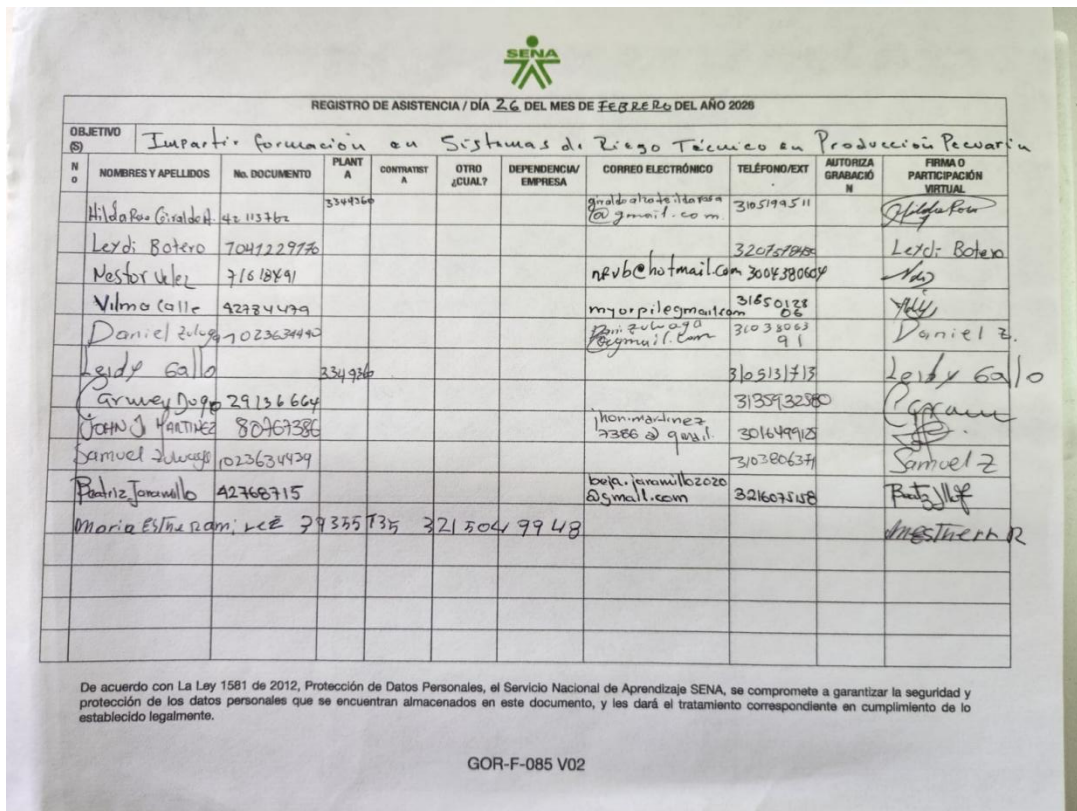 SENA
REGISTRO DE ASISTENCIA / DÍA 26 DEL MES DE FEBRERO DEL AÑO 2026
OBJETIVO (S) Impartir formación en Sistemas de Riego Técnico en Producción Pecuaria
No NOMBRES Y APELLIDOS No. DOCUMENTO PLANTA CONTRATISTA OTRO ¿CUAL? DEPENDENCIA/ EMPRESA CORREO ELECTRÓNICO TELÉFONO/EXT AUTORIZA GRABACIÓN FIRMA O PARTICIPACIÓN VIRTUAL
Hilda Rosa Giraldo A. 42 113762 3344360 @gmail.com. 3105199511 Hilda Rosa
Leydi Botero 7041229776 Leydi Botero
Nestor Velez 71618491 nrvb@hotmail.com 3004380604
Vilma Calle 42784479 31650128 06
Daniel Zuluaga 1023634440 Dani.zuluaga @gmail.com 31038063 91 Daniel Z.
Leidy Gallo 3105131713 Leidy Gallo
Carmen Dugo 29136664 3135932580
JOHN J MARTINEZ 80767386 jhon.martinez 7386 @ gmail. 3016499125
Samuel Zuluaga 1023634439 3103806371 Samuel Z
Beatriz Jaramillo 42768715 beja.jaramillo2020 @gmail.com 3216075158
Maria Esther Ramirez 39355735 321 504 9948
De acuerdo con La Ley 1581 de 2012, Protección de Datos Personales, el Servicio Nacional de Aprendizaje SENA, se compromete a garantizar la seguridad y
protección de los datos personales que se encuentran almacenados en este documento, y les dará el tratamiento correspondiente en cumplimiento de lo
establecido legalmente.
GOR-F-085 V02